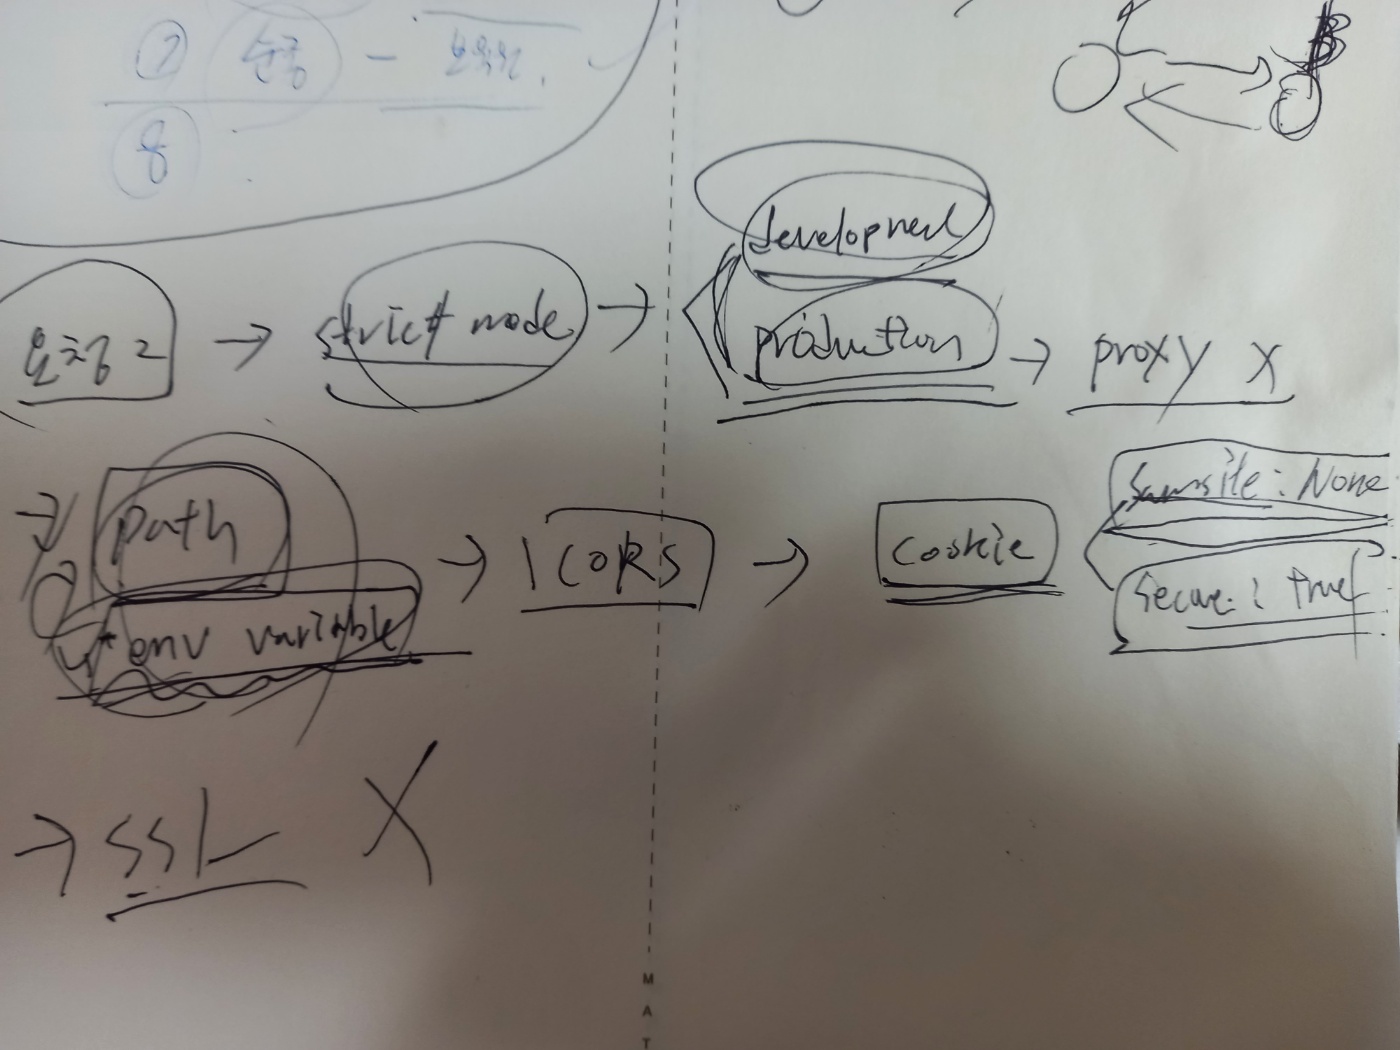 ⑦ 순공 -
⑧
요청 2 → strict mode → development
production → proxy X
→ path
* env variable → CORS → cookie
Samsite : None
Secure : true
→ SSL X
M
A
T